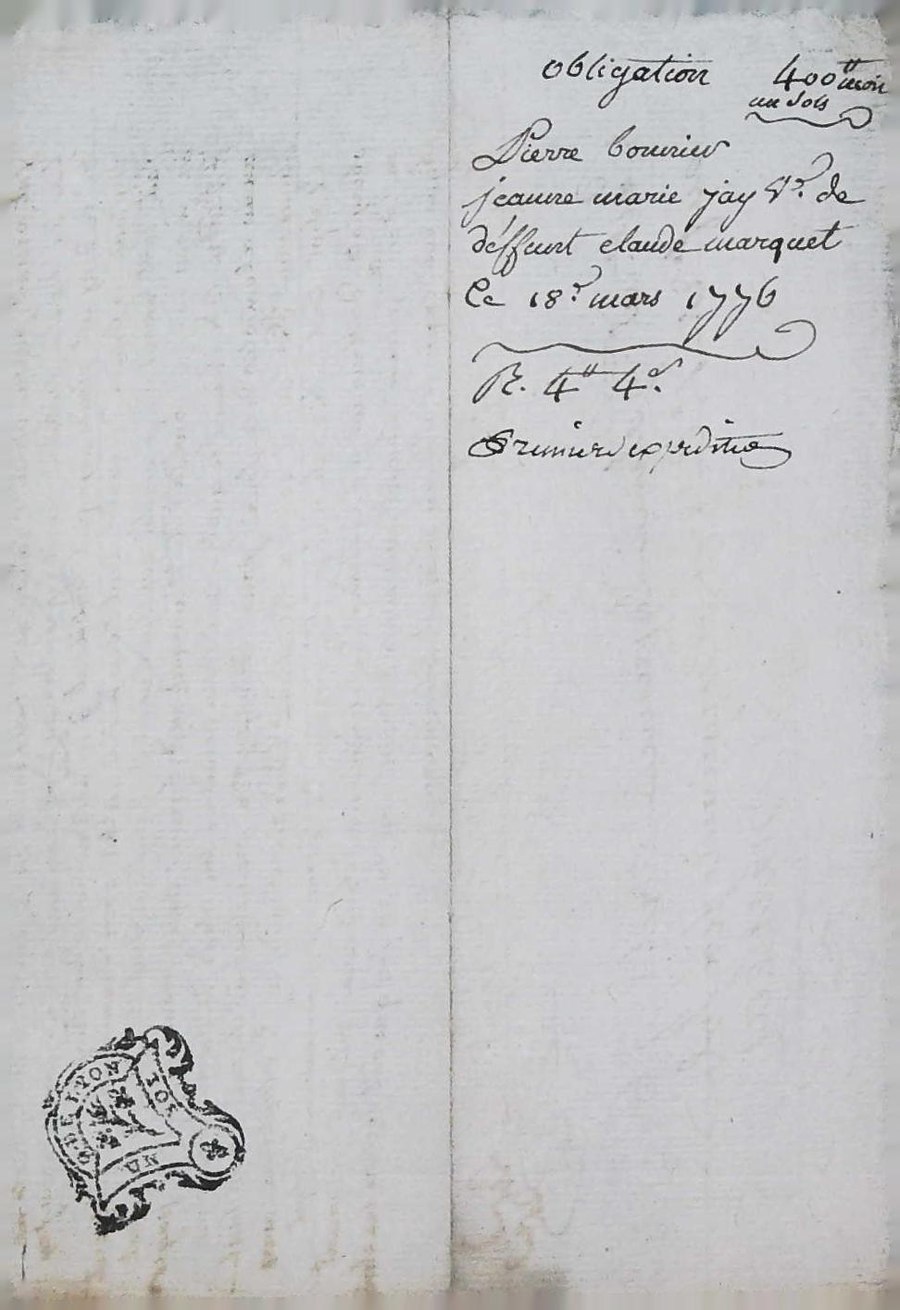 obligation 400tt moin
un sols
Pierre bouvier
jeanne marie jay Ve. de
déffunt claude marquet
Le 18e mars 1776
R. 4tt 4s.
Premiere expedition
G. DE LYON
UN SOL